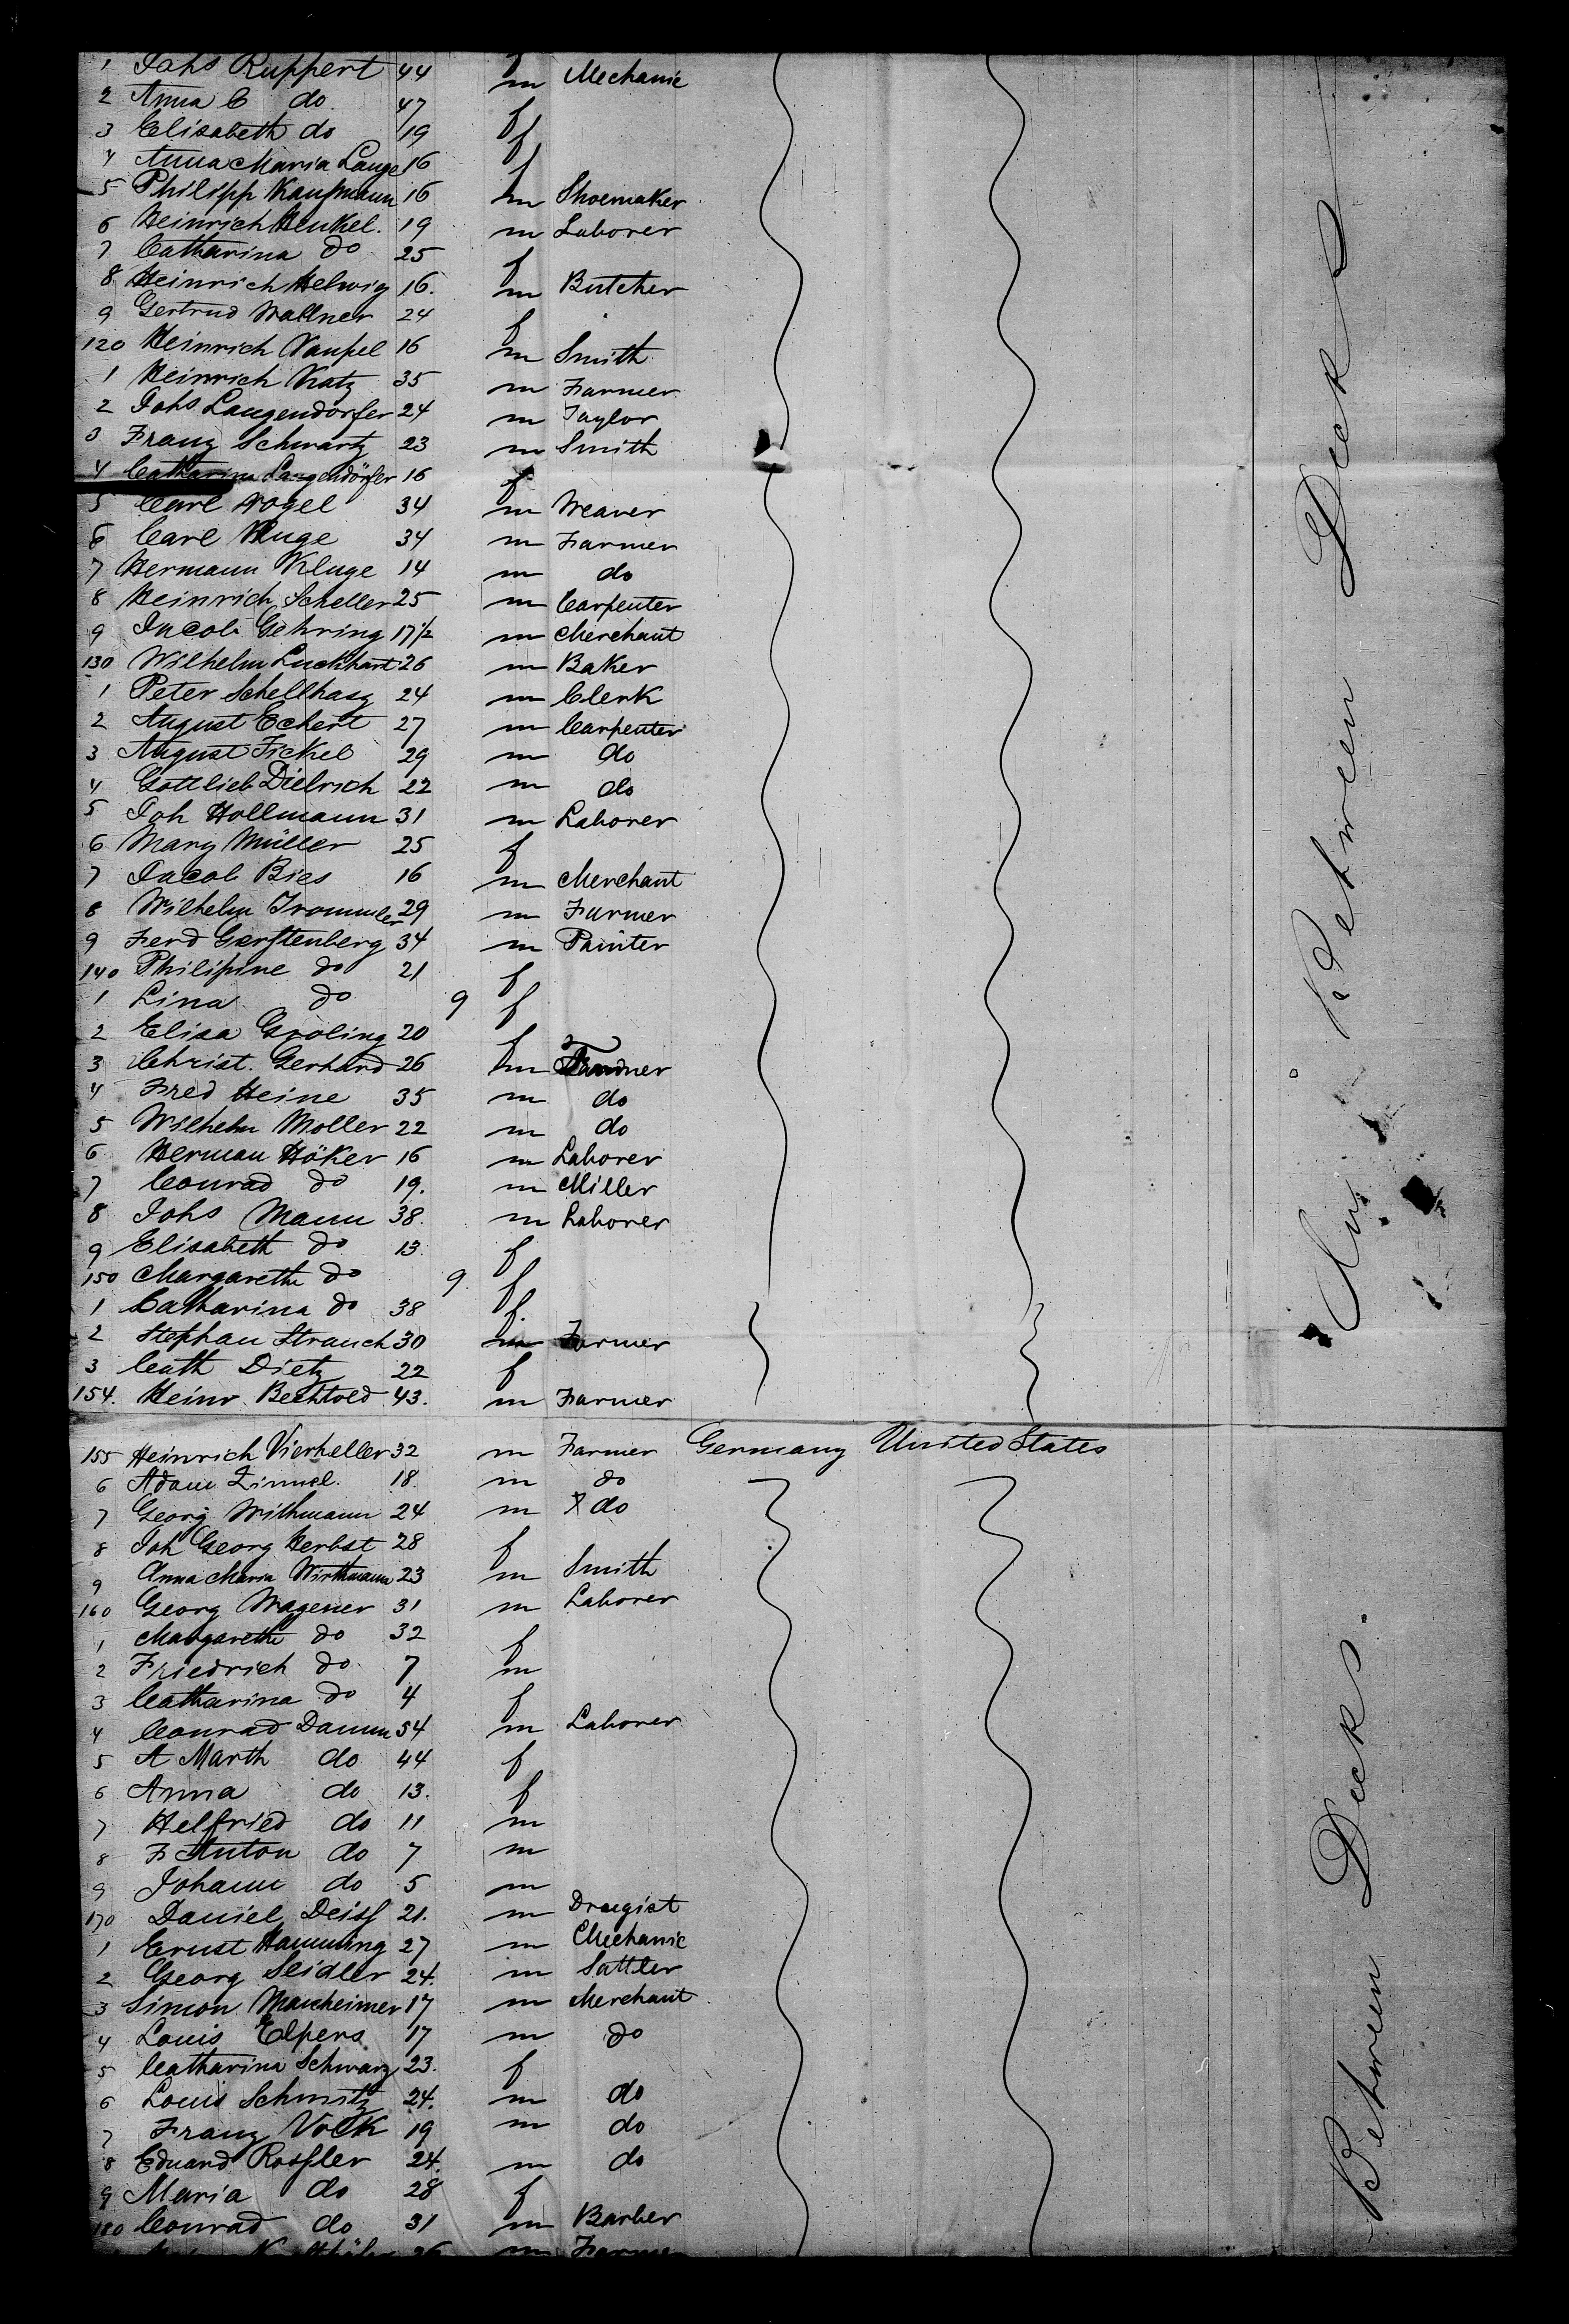 1 Johs Ruppert 44 m Mechanic
2 Anna C do 47 f
3 Elisabeth do 19 f
4 Anna Maria Lange 16 f
5 Philipp Kaufmann 16 m Shoemaker
6 Heinrich Henkel. 19 m Laborer
7 Catharina do 25 f
8 Heinrich Helwig 16. m Butcher
9 Gertrud Wallner 24 f
120 Heinrich Vaupel 16 m Smith
1 Heinrich Katz 35 m Farmer
2 Johs Langendörfer 24 m Taylor
3 Franz Schwartz 23 m Smith
4 Catharina Langendörfer 16 f
5 Carl Vogel 34 m Weaver
6 Carl Kluge 34 m Farmer
7 Hermann Kluge 14 m do
8 Heinrich Scheller 25 m Carpenter
9 Jacob Gehring 17½ m Merchant
130 Wilhelm Luckhart 26 m Baker
1 Peter Schellhasz 24 m Clerk
2 August Eckert 27 m Carpenter
3 August Fickel 29 m do
4 Gottlieb Dielrich 22 m do
5 Joh Hollmann 31 m Laborer
6 Mary Müller 25 f
7 Jacob Bies 16 m Merchant
8 Wilhelm Trommler 29 m Farmer
9 Ferd Gerstenberg 34 m Painter
140 Philipine do 21 f
1 Lina do 9 f
2 Elisa Groling 20 f
3 Christ. Gerhard 26 m
4 Fred Heine 35 m do
5 Wilhelm Moller 22 m do
6 Herman Höker 16 m Laborer
7 Conrad do 19. m Miller
8 Johs Mann 38. m Laborer
9 Elisabeth do 13. f
150 Margarethe do 9. f
1 Catharina do 38 f.
2 Stephan Strauch 30 m Farmer
3 Cath Dietz 22 f
154. Heinr. Bechtold 43. m Farmer
155 Heinrich Vierheller 32 m Farmer Germany United States
6 Adam Zimmel. 18. m do
7 Georg Withmann 24 m X do
8 Joh Georg Herbst 28 f
9 Anna Maria Wirthmann 23 m Smith
160 Georg Wagener 31 m Laborer
1 Margarethe do 32 f
2 Friedrich do 7 m
3 Catharina do 4 f
4 Conrad Damm 54 m Laborer
5 A Marth do 44 f
6 Anna do 13. f
7 Helfried do 11 m
8 F Anton do 7 m
9 Johann do 5 m
170 Daniel Deiss 21. m Drugist
1 Ernst Hamming 27 m Mechanic
2 Georg Seidler 24. m Sattler
3 Simon Manheimer 17 m Merchant
4 Louis Elpers 17 m do
5 Catharina Schwarz 23. f
6 Louis Schmitz 24. m do
7 Franz Volk 19 m do
8 Eduard Rossler 24. m do
9 Maria do 28 f
180 Conrad do 31 m Barber
26 m Farmer
Between Decks
Between Decks.